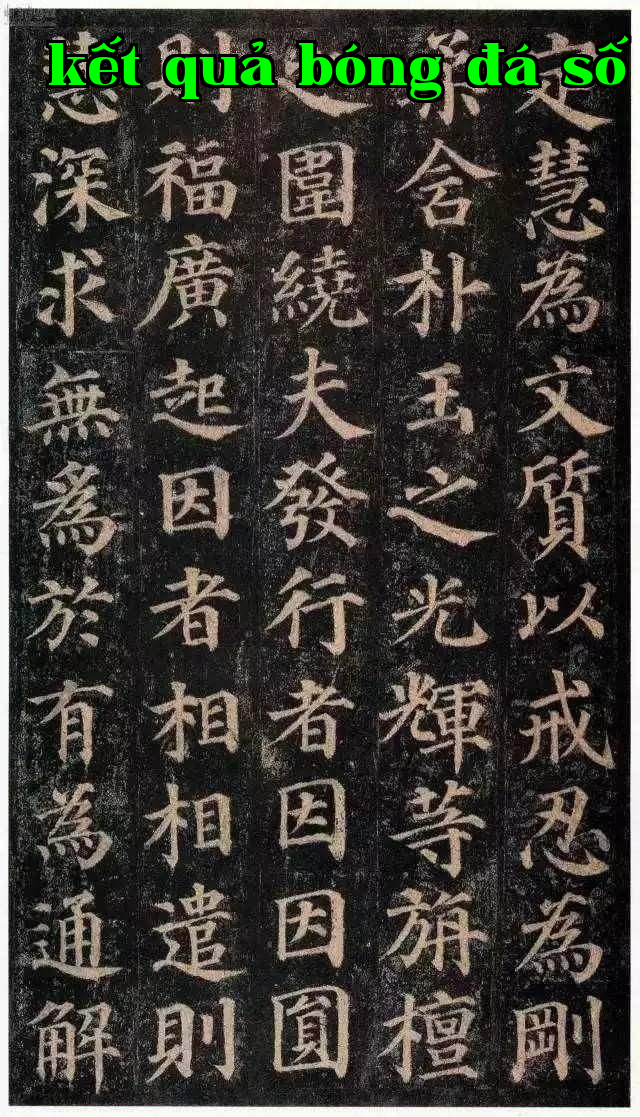 kết quả bóng đá số
定慧為文質以戒忍為剛
柔含朴玉之光輝等旃檀
之圍繞夫發行者因因圓
則福廣起因者相相遣則
慧深求無為於有為通解